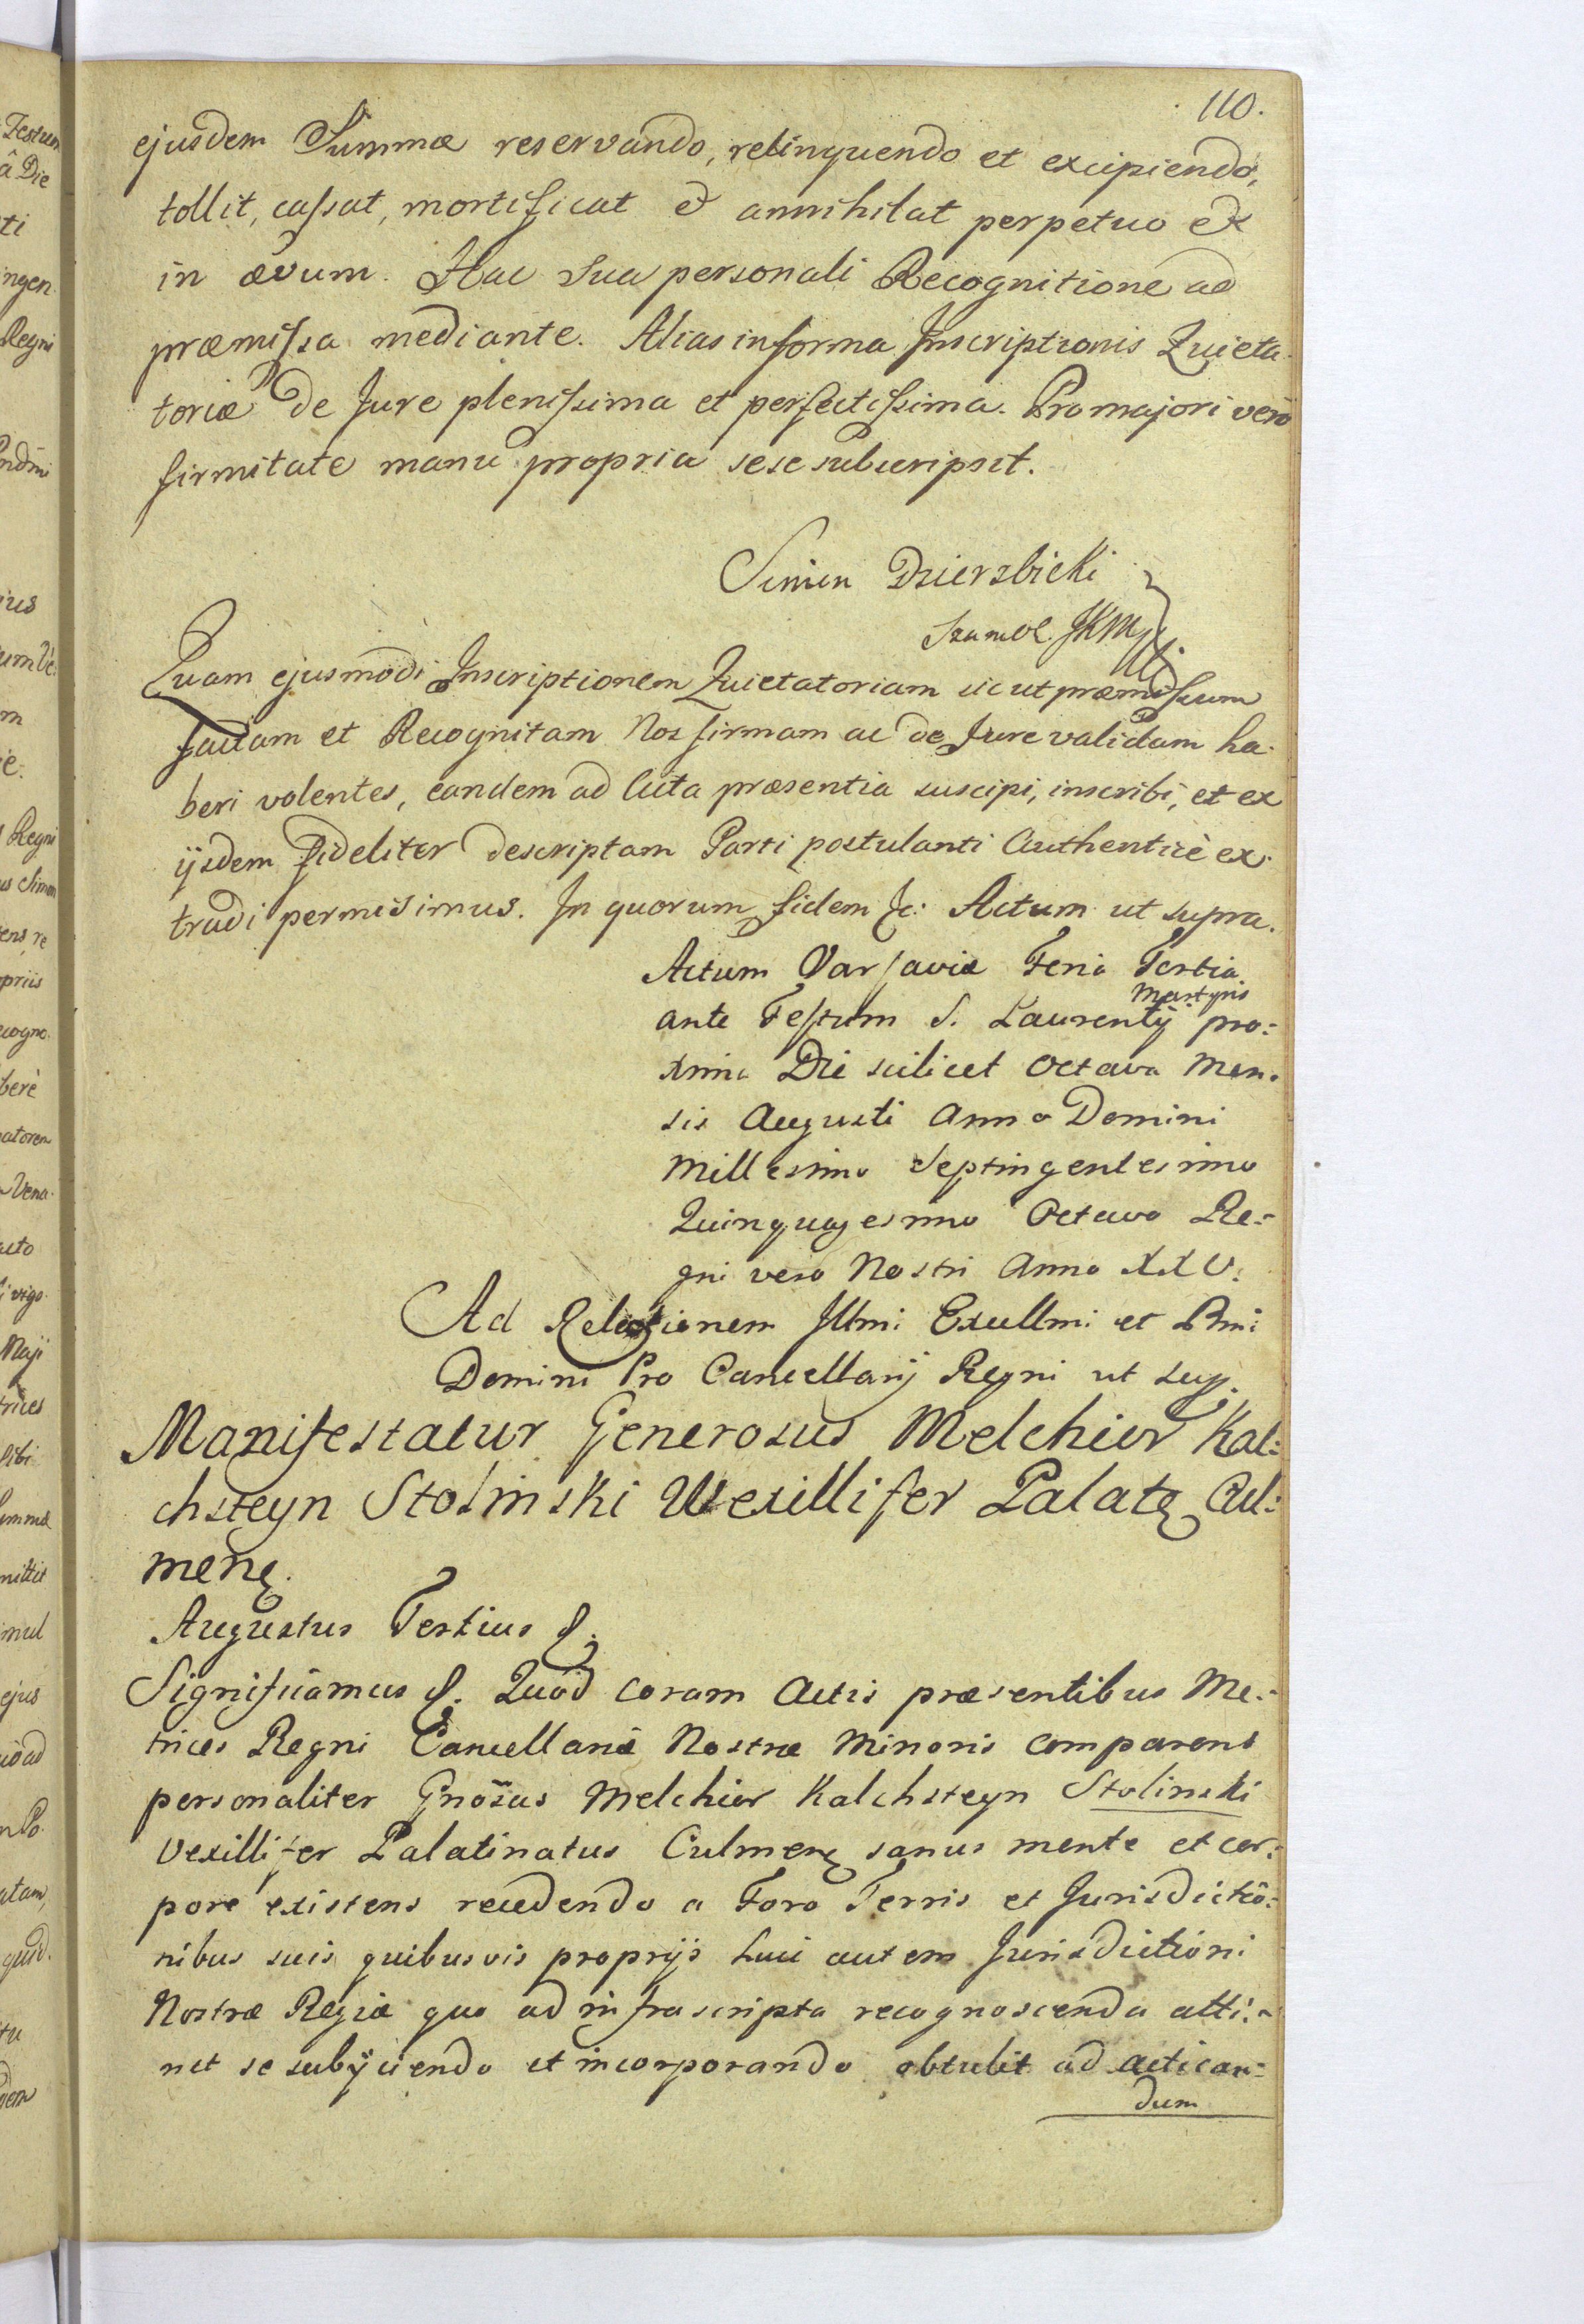 110.
ejusdem Summæ reservando, relinquendo et excipiendo,
tollit, cassat, mortificat et annihilat perpetuo et
in ævum. Hac sua personali Recognitione ad
præmissa mediante. Alias in forma Inscriptionis Quieta-
toriæ de Jure plenissima et perfectissima. Pro majori verò
firmitate manu propria sese subscripsit.
Simon Dzierzbicki
Szambel. JKM
Quam ejusmodi Inscriptionem Quietatoriam sic ut præmissum
factam et Recognitam Nos firmam ac de Jure validam ha-
beri volentes, eandem ad Acta præsentia suscipi, inscribi, et ex
ijsdem fideliter descriptam Parti postulanti Authenticè ex-
tradi permisimus. In quorum fidem &c: Actum ut supra.
Actum Varsaviæ Feria Tertia
ante Festum S. Laurentij Martyris pro:
xima Die scilicet Octava Men-
sis Augusti Anno Domini
Millesimo Septingentesimo
Quinquagesimo Octavo Re:
gni vero Nostri Anno XXV.
Ad Relationem Illmi Excellmi et Rmi
Domini Pro Cancellarij Regni ut sup.
Manifestatur Generosus Melchior Kal:
chsteyn Stolinski Vexillifer Palatę Cul:
menę.
Augustus Tertius &.
Significamus &. Quòd coram Actis præsentibus Me:
trices Regni Cancellariæ Nostræ Minoris comparens
personaliter Gnosus Melchior Kalchsteyn Stolinski
Vexillifer Palatinatus Culmenę sanus mente et cor:
pore existens recedendo a Foro Terris et Jurisdictio:
nibus suis quibusvis proprijs huic autem Jurisdictioni
Nostræ Regiæ quo ad infrascripta recognoscenda atti:
net se subijciendo et incorporando obtulit ad actican:
dum